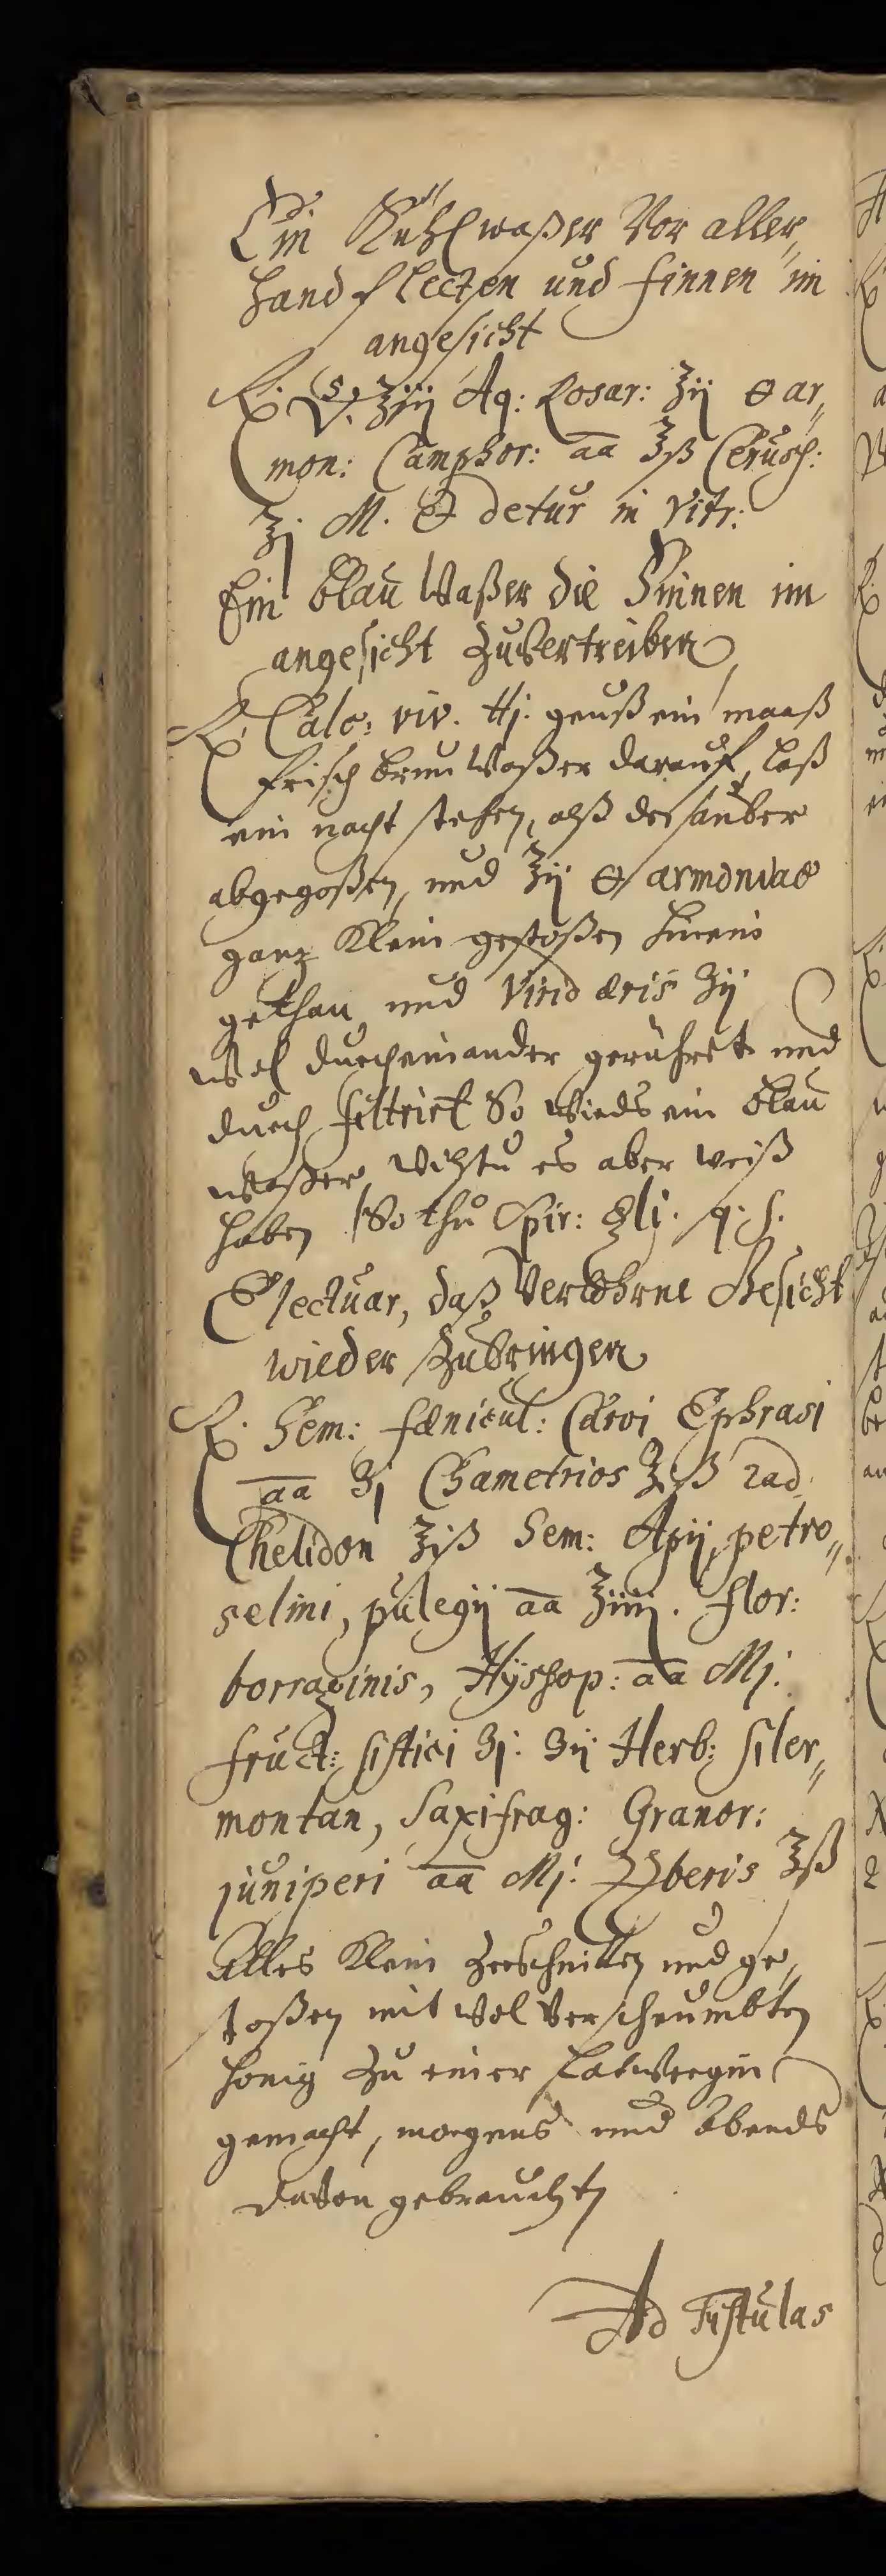 Ein Kühlwaßer Vor aller„
hand flecten und finnen im
angesicht
℞. ʒiij Aq: Rosar: ʒij ⊖ ar„
mon: Camphor: aa ʒß Ceruss:
ʒj M. & detur in Vitr:
Ein blau Waßer die Finnen im
angesicht zuvertreiben
℞. Calc: viv. ℔j. geuß ein maaß
frisch brun Waßer darauf, laß
ein nacht stehen, alß den sauber
abgegoßen, und ʒij ⊖ armoniac
ganz klein gestoßen hinein
gethan und Virid æris ʒij
Wol durcheinander gerühret und
durch filtrirt So wirds ein blau
Waßer, Wiltu es aber weiß
haben So thu Spir: ⊖li. q. s.
Electuar, daß Verlohrne Gesicht
wieder Zubringen
℞. Sem: fœnicul: Carvi Ephrasi
aa ʒj Chametrios ʒiß rad.
Chelidon ʒiß Sem: Apij, petro„
selini, pulegij aa ʒiiij. flor:
borraginis, Hÿssop: aa Mj.
fruct: sistici ʒj. ʒij Herb: siler„
montan, Saxifrag: Granor:
juniperi aa Mj. Zȝberis ʒß
Alles klein zerschnitten und ge„
stoßen mit Wol Verscheumbten
honig zu einer Latwergin
gemacht, morgens und Abends
davon gebrauchten
Ad Fistulas